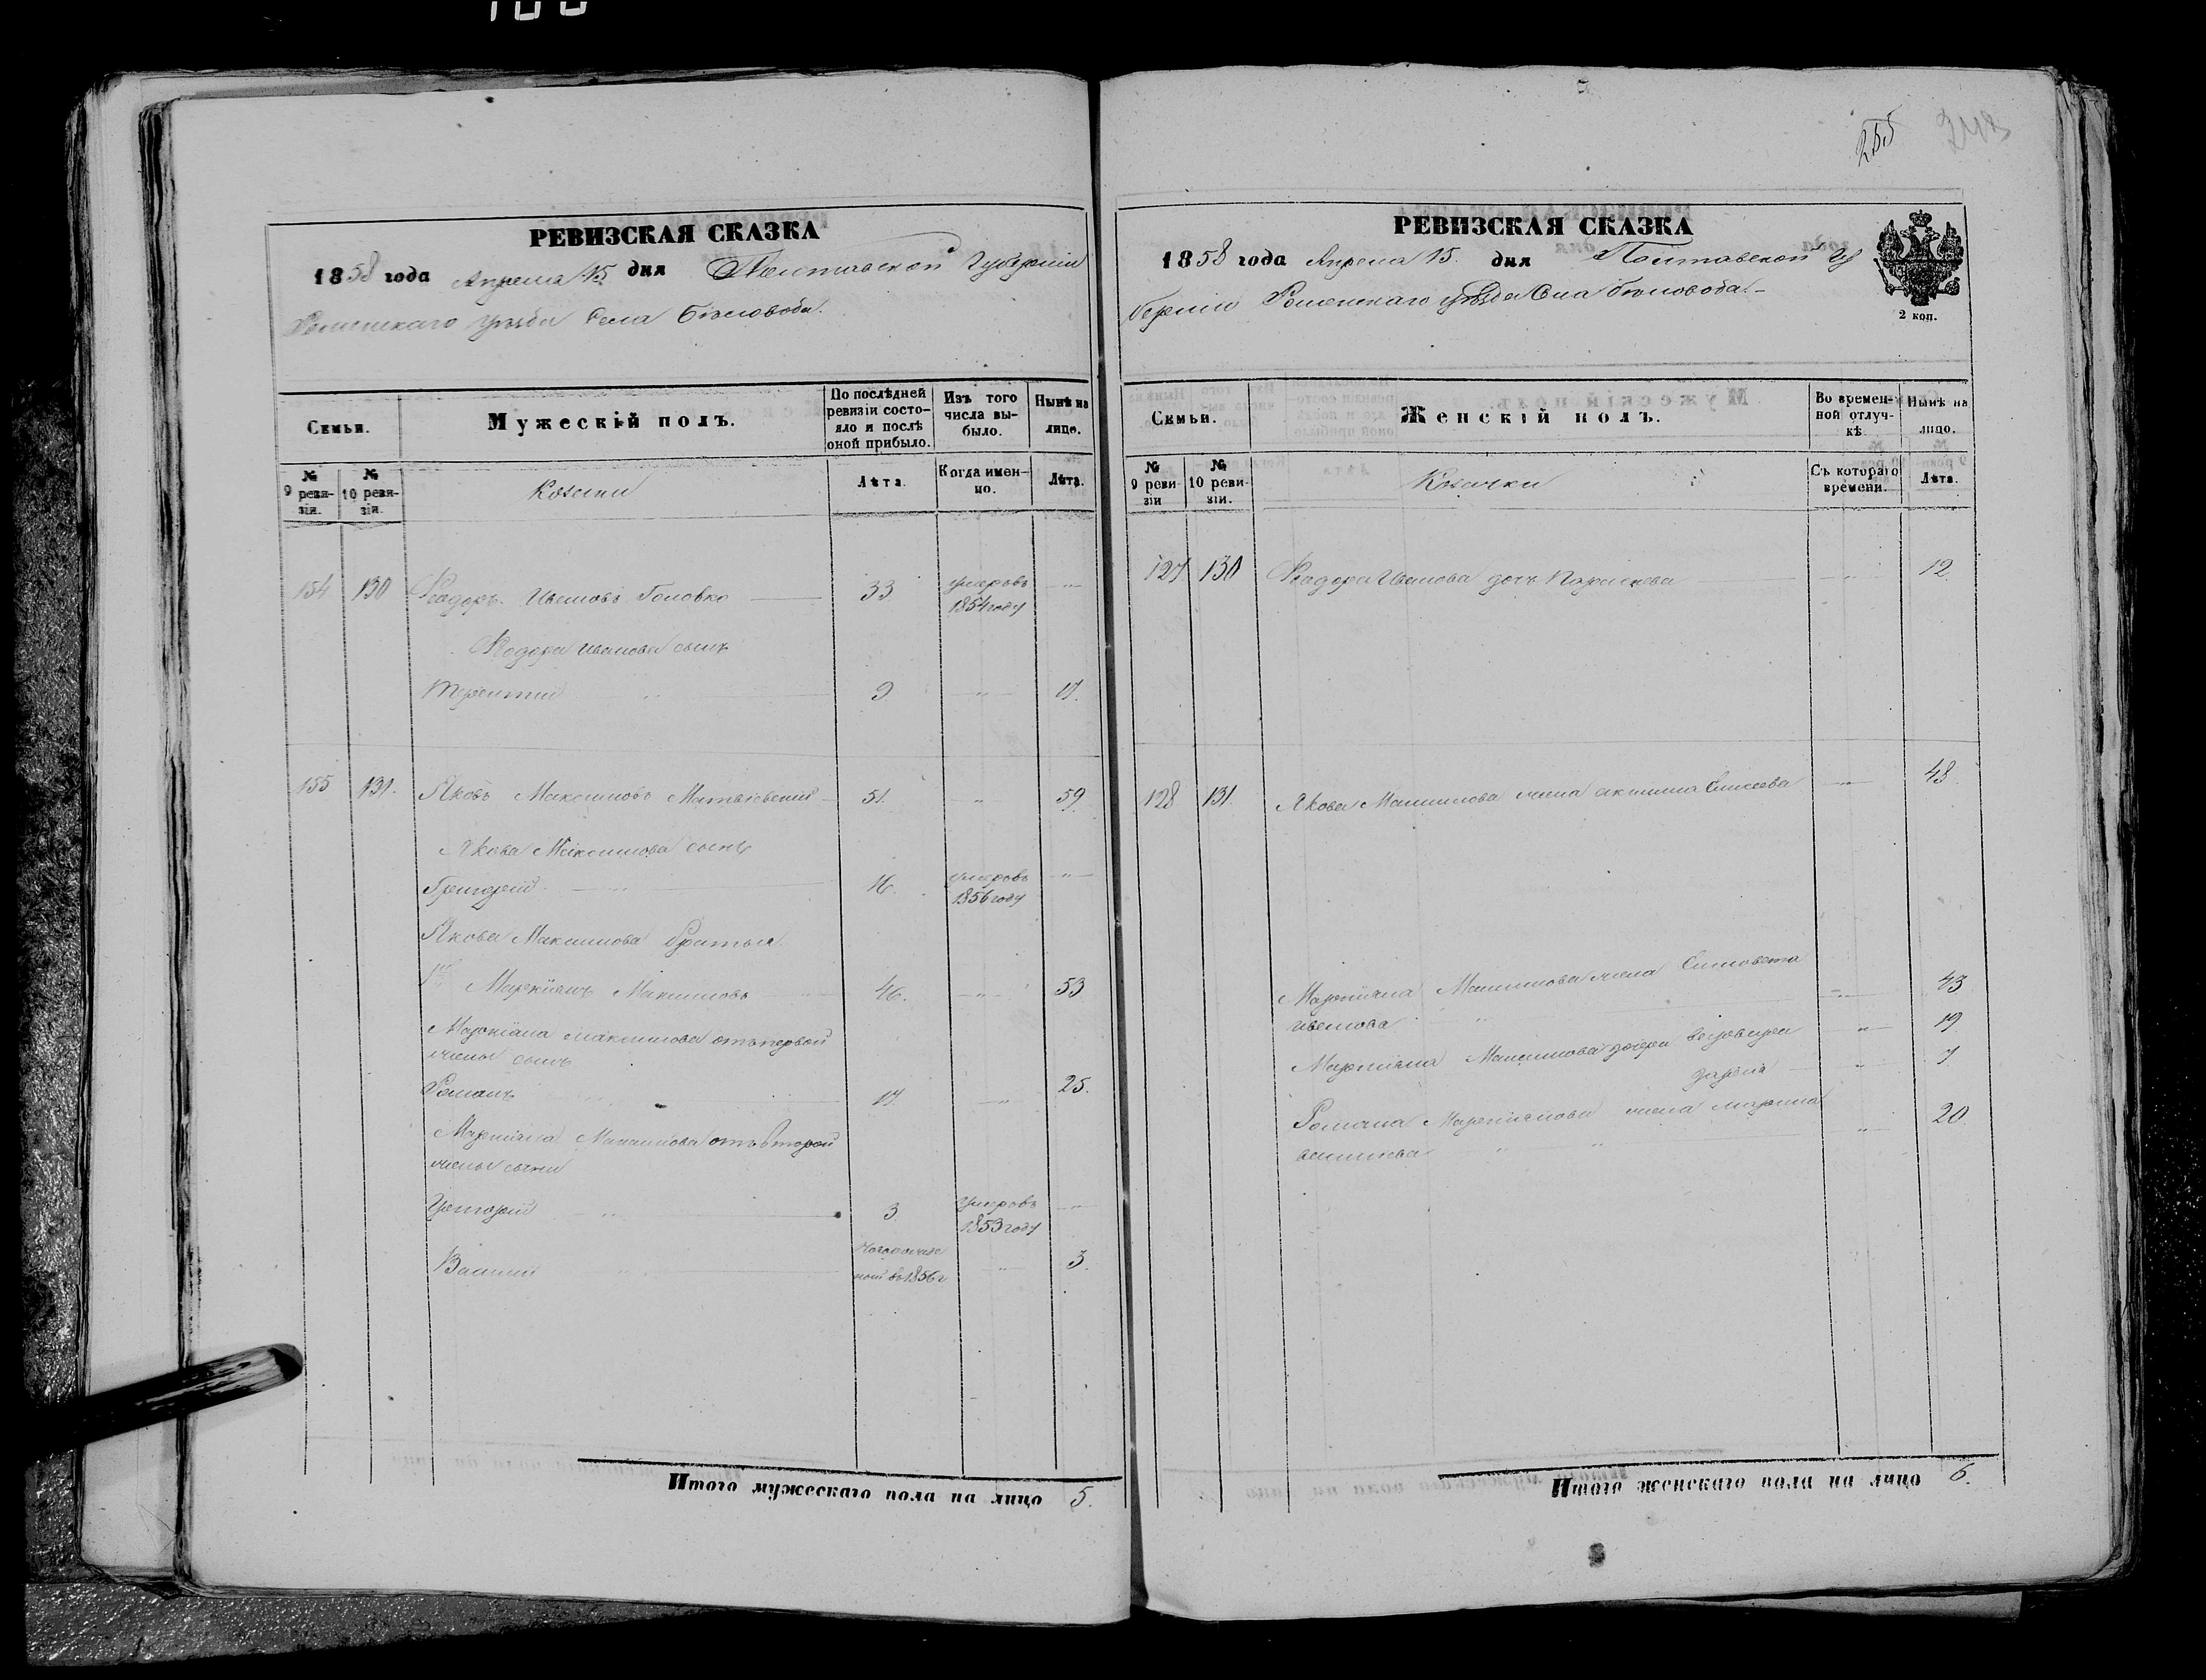 255
РЕВИЗСКАЯ СКАЗКА
1858 года Апреля 15 дня Полтавской Губернии
Роменского уѣзда Села Бѣловода.
Семьи.
Мужескій полъ.
По послѣдней ревизіи состо-
яло и послѣ оной прибыло.
Изъ того числа вы-
было.
Нынѣ на лицо.
№ 9 реви-
зіи.
№ 10 реви-
зіи.
Козаки
Лѣта.
Когда имен-
но.
Лѣта.
154 130 Федоръ Ивановъ Головко 33 умеръ въ 1854 году
Федора Иванова сынъ
Терентий 9 17.
155 131. Яковъ Максимовъ 51. 59.
Якова Максимова сынъ
Григорій 16. умеръ въ 1856 году
Якова Максимова братья
1й Маркіянъ Максимовъ 46. 53
Маркіяна Максимова отъ первой
жены сынъ
Романъ 17. 25.
Маркіяна Максимова отъ второй
жены сыни
Григорій 3. умеръ въ 1853 году
Василий 3.
въ 1856 г
Итого мужескаго пола на лицо 5.
РЕВИЗСКАЯ СКАЗКА
1858 года Апреля 15. дня Полтавской Гу
берніи Роменскаго уѣзда Сла Бѣловода.
2 коп.
Семьи.
Женскій полъ.
Во времен-
ной отлуч-
кѣ.
Нынѣ на лицо.
№ 9 реви-
зіи
№ 10 реви-
зіи.
Козачки
Съ котораго времени.
Лѣта.
127 130 Федора Иванова дочь Параскева 12.
128 131. Якова Максимова жена Елисеева 48.
Маркіяна Максимова жена Елисовета
Иванова 43
Маркіяна Максимова дочери 19
7
Романа Маркіянова жена Марина 20.
Итого женскаго пола на лицо 6.